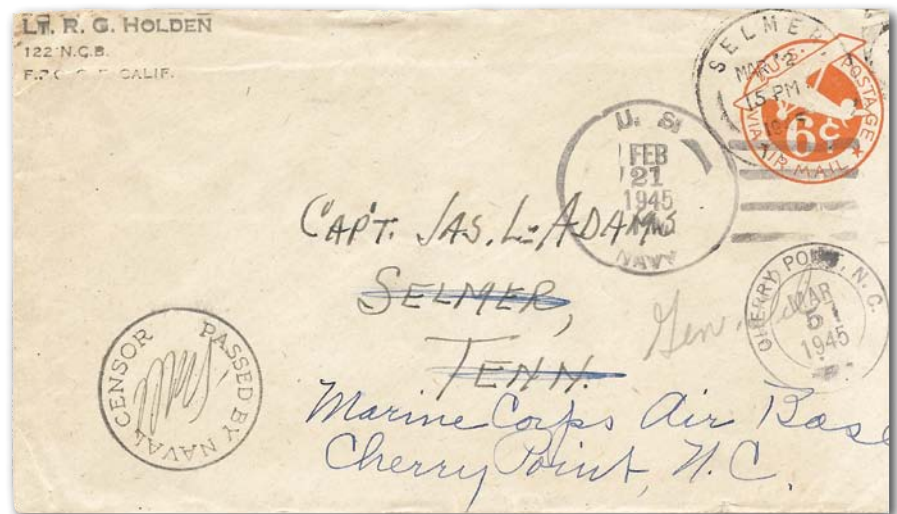 LT. R. G. HOLDEN
122 N.C.B.
F.P.O. S. F. CALIF.
SELMER
MAR 2
15 PM
U.S. POSTAGE
6¢
VIA AIR MAIL
U. S.
FEB
21
1945
NAVY
CAPT. JAS. L. ADAMS
SELMER,
TENN.
CHERRY POINT, N. C.
MAR
5
1945
Gen.
PASSED BY NAVAL CENSOR
Marine Corps Air Base
Cherry Point, N.C.